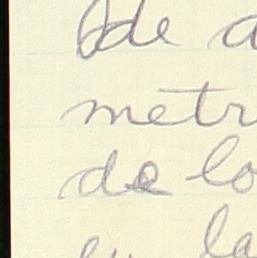 de a
metr
de lo
la